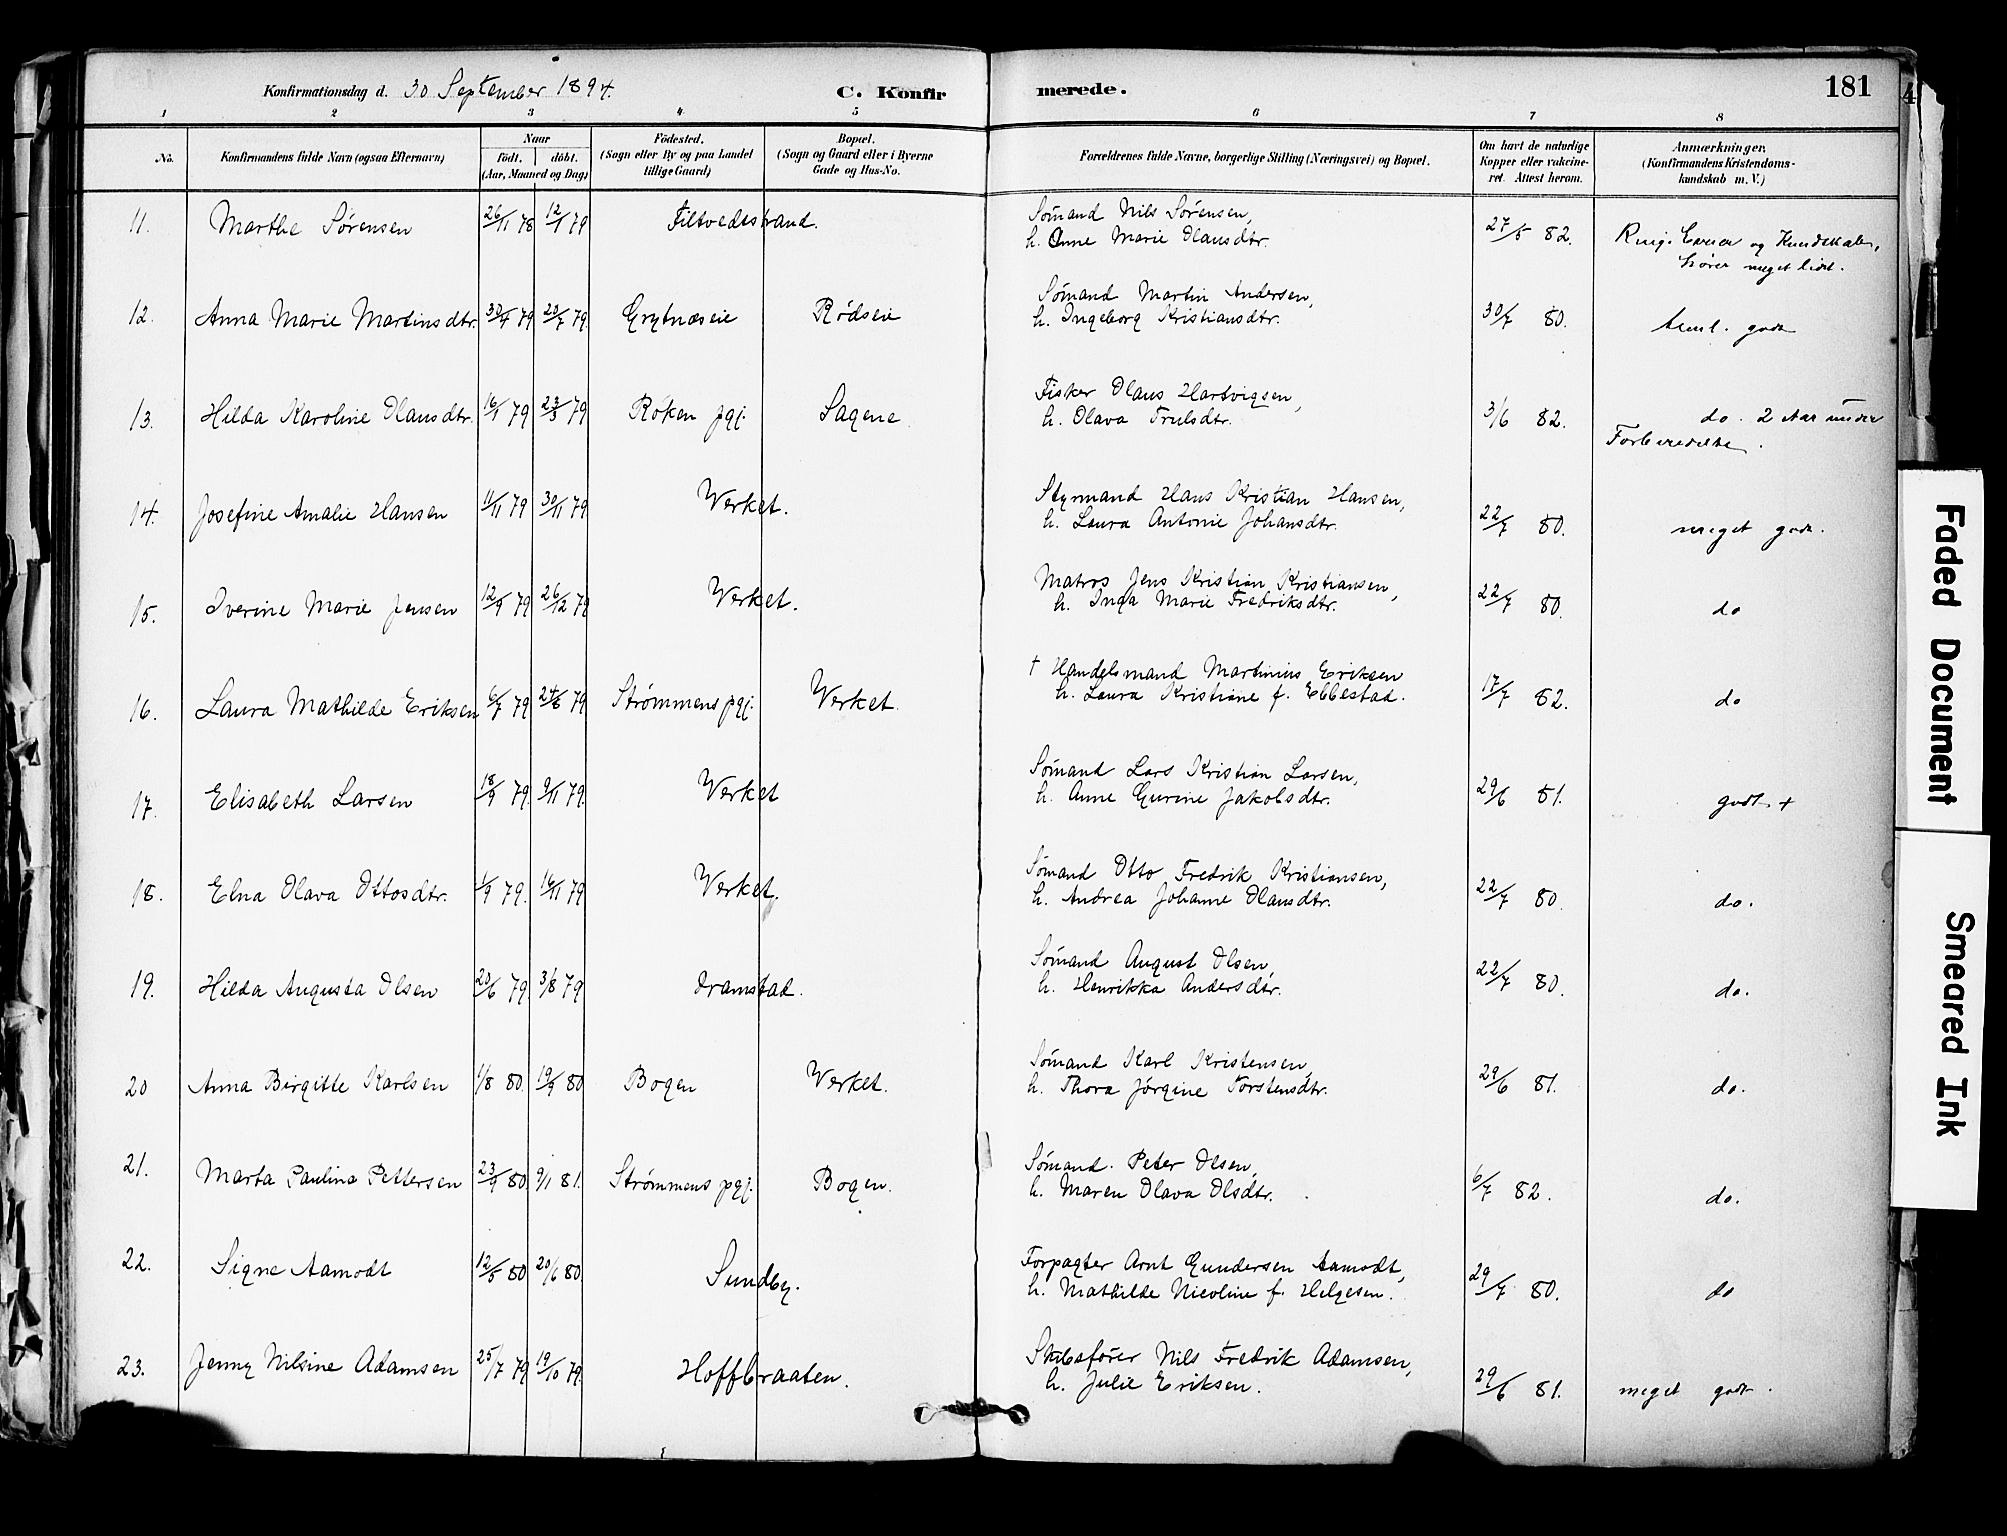 Konfirmationsdag d. 30 September 1894. C. Konfir merede. 181
1 2 3 4 5 6 7 8
No. Konfirmandens fulde Navn (ogsaa Efternavn) Naar født. døbt. (Aar, Maaned og Dag) Fødested. (Sogn eller By og paa Landet tillige Gaard) Bopæl. (Sogn og Gaard eller i Byerne Gade og Hus-No. Forældrenes fulde Navne, borgerlige Stilling (Næringsvei) og Bopæl. Om havt de naturlige Kopper eller vakcineret. Attest herom. Anmærkninger. (Konfirmandens Kristendomskundskab m. V.)
11. Marthe Sørensen 26/11 78 12/1 79 Filtvedtstrand. Sømand Nils Sørensen, 27/5 82. Ringe Evner og Kundskaber,
h. Anne Marie Olausdtr. hører meget lidt.
12. Anna Marie Martinsdtr. 30/4 79 20/7 79. Grytnæseie Rødseie Sømand Martin Andersen, 30/7 80. teml. godt
h. Ingeborg Kristiansdtr.
13. Hilda Karoline Olausdtr. 16/1 79 23/3 79 Røken pgj. Sagene Fisker Olaus Hartvigsen, 3/6 82. do. 2 Aar under
h. Olava Trulsdtr. Forberedelse.
14. Josefine Amalie Hansen 11/11 79 30/11 79 Verket. Styrmand Hans Kristian Hansen, 22/7 80. meget godt.
h. Laura Antonie Johansdtr.
15. Iverine Marie Jensen 12/9 79 26/12 79 Verket. Matros Jens Kristian Kristiansen, 22/7 80. do
h. Inga Marie Fredriksdtr.
16. Laura Mathilde Eriksen 6/7 79 24/8 79 Strømmens pgj. Verket. † Handelsmand Martinius Eriksen 17/7 82. do
h. Laura Kristiane f. Ebbestad.
17. Elisabeth Larsen 18/9 79. 9/11 79. Verket Sømand Lars Kristian Larsen, 29/6 81. godt +
h. Anne Gurine Jakobsdtr.
18. Elna Olava Ottosdtr. 1/9 79. 16/11 79 Verket. Sømand Otto Fredrik Kristiansen, 22/7 80. do.
h. Andrea Johanne Olausdtr.
19. Hilda Augusta Olsen 20/6 79. 3/8 79 Tramstad. Sømand August Olsen, 22/7 80. do.
h. Henrikka Andersdtr.
20 Anna Birgitte Karlsen 1/8 80. 19/9 80 Bogen Verket. Sømand Karl Kristensen, 29/6 81. do.
h. Thora Jørgine Torstensdtr.
21. Marta Paulina Pettersen 23/9 80. 9/1 81. Strømmens pgj. Bogen. Sømand. Peter Olsen, 6/7 82. do.
h. Maren Olava Olsdtr.
22. Signe Aamodt 12/5 80 20/6 80. Sundby. Forpagter Arnt Gundersen Aamodt, 29/7 80. do
h. Mathilde Nicoline f. Helgesen.
23. Jenny Nilsine Adamsen 25/7 79 19/10 79. Hoffbraaten. Skibsfører Nils Fredrik Adamsen, 29/6 81. meget godt.
h. Julie Eriksen.
Faded Document
Smeared Ink